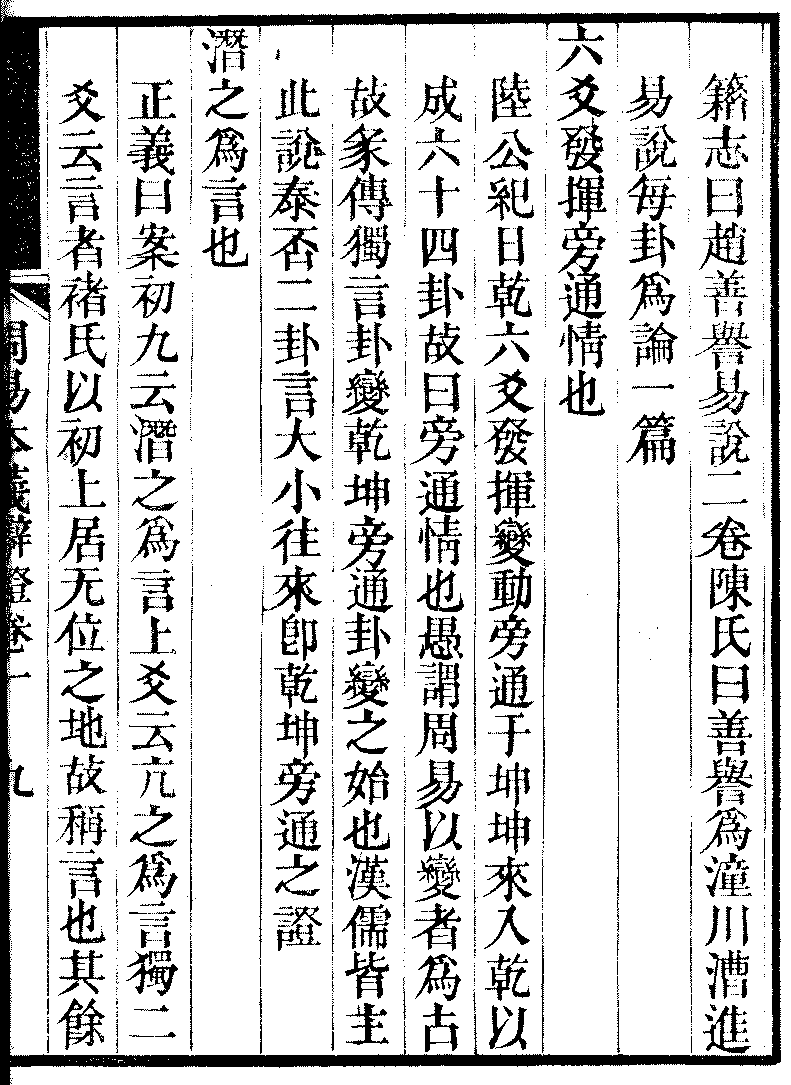 籍志曰趙善譽易說二卷陳氏曰善譽爲潼川漕進
易說每卦爲論一篇
六爻發揮旁通情也
陸公紀曰乾六爻發揮變動旁通于坤坤來入乾以
成六十四卦故曰旁通情也愚謂周易以變者爲占
故彖傳獨言卦變乾坤旁通卦變之始也漢儒皆主
此說泰否二卦言大小往來卽乾坤旁通之證
潛之爲言也
正義曰案初九云潛之爲言上爻云亢之爲言獨二
爻云言者褚氏以初上居无位之地故稱言也其餘
周易本義辯證卷一 九